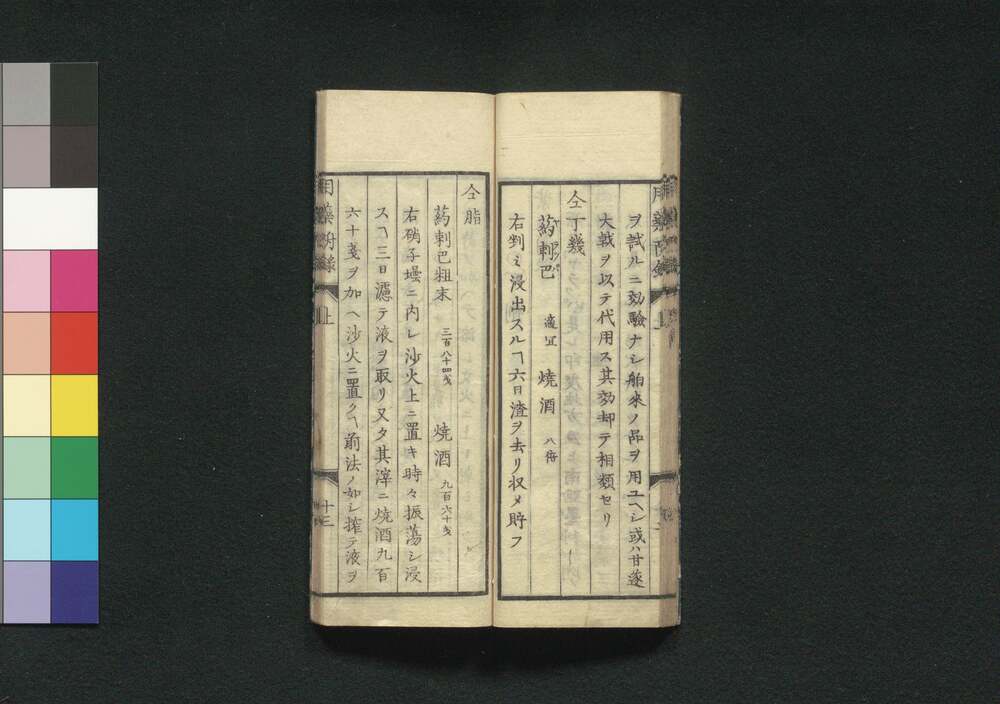 ヲ試ルニ効驗ナシ舶來ノ品ヲ用ユヘシ或ハ甘遂
大戟ヲ以テ代用ス其効却テ相類セリ
仝丁幾
葯剌巴 適宜 燒酒 八倍
右剉ミ浸出スルヿ六日渣ヲ去リ収メ貯フ
仝脂
葯剌巴粗末 三百八十四戔 燒酒 九百六十戔
右硝子壜ニ内レ沙火上ニ置キ時々振蕩シ浸
スヿ三日濾テ液ヲ取リ又タ其滓ニ燒酒九百
六十戔ヲ加ヘ沙火ニ置クヿ前法ノ如シ搾テ液ヲ
上
十三